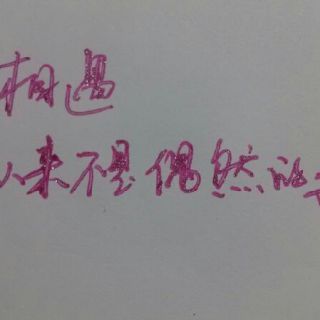 相遇
从来不是偶然的